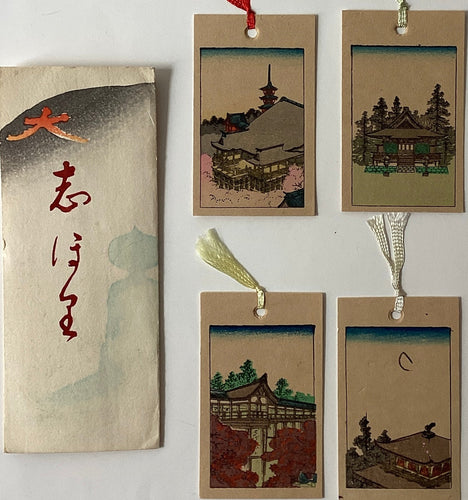 大
志ほり